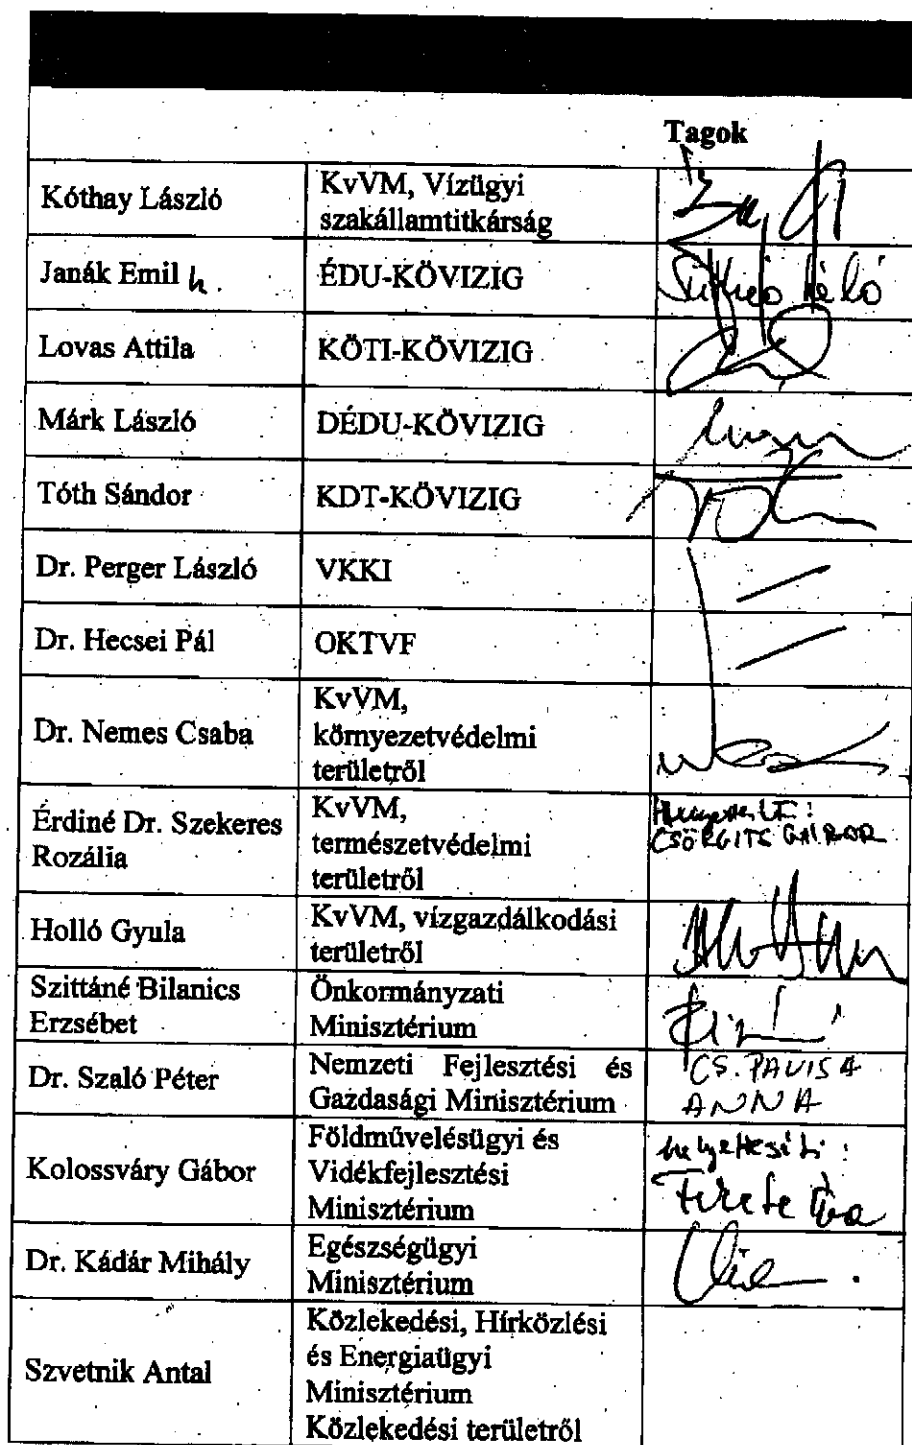 Tagok
Kóthay László
KvVM, Vízügyi
szakállamtitkárság
Janák Emil h.
ÉDU-KÖVIZIG
Lovas Attila
KÖTI-KÖVIZIG
Márk László
DÉDU-KÖVIZIG
Tóth Sándor
KDT-KÖVIZIG
Dr. Perger László
VKKI
Dr. Hecsei Pál
OKTVF
Dr. Nemes Csaba
KvVM,
környezetvédelmi
területről
Érdiné Dr. Szekeres
Rozália
KvVM,
természetvédelmi
területről
CSÖRGITS GÁBOR
Holló Gyula
KvVM, vízgazdálkodási
területről
Szittáné Bilanics
Erzsébet
Önkormányzati
Minisztérium
Dr. Szaló Péter
Nemzeti Fejlesztési és
Gazdasági Minisztérium
CS. PAVISA
ANNA
Kolossváry Gábor
Földművelésügyi és
Vidékfejlesztési
Minisztérium
helyettesíti:
Dr. Kádár Mihály
Egészségügyi
Minisztérium
Szvetnik Antal
Közlekedési, Hírközlési
és Energiaügyi
Minisztérium
Közlekedési területről